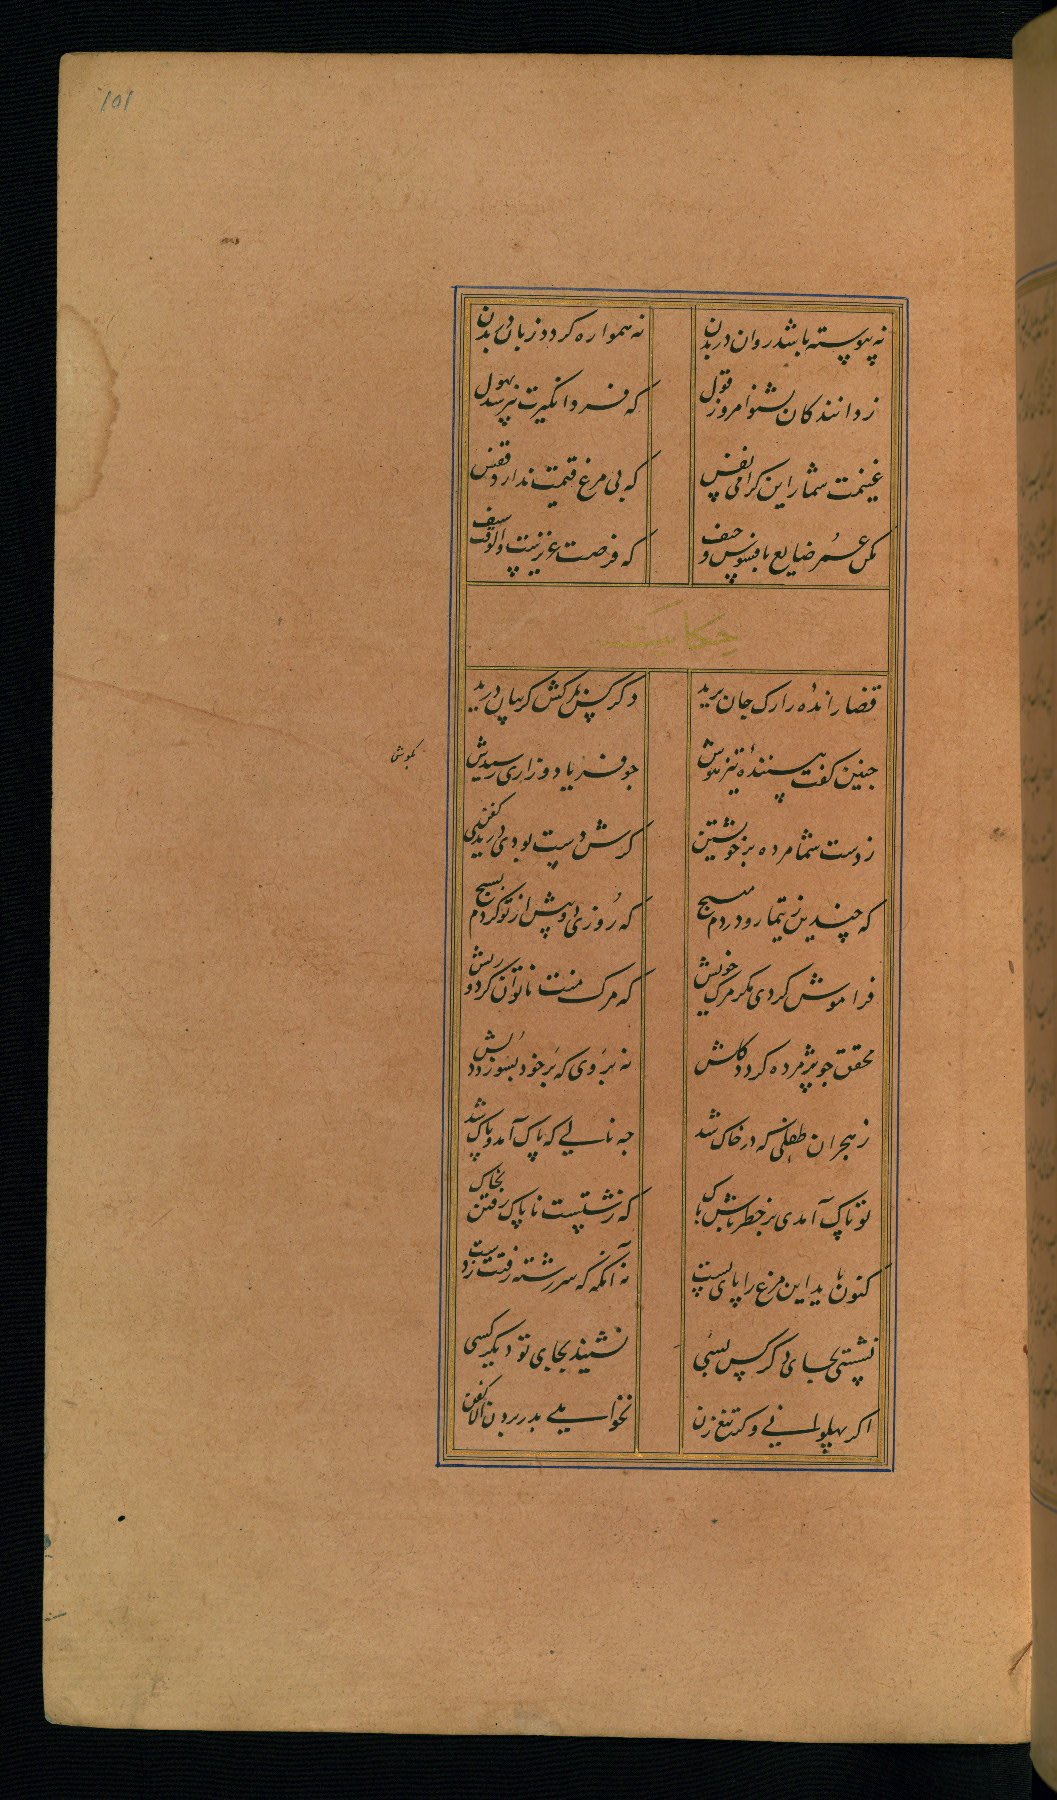 101
نه پیوسته باشد روان در بدن نه همواره کردد زبان در دهن
ز دانندکان بشنو امروز قول که فردا نکیرت بپرسد بهول
غنیمت شمار این کرامی نفس که بی مرغ قیمت ندارد قفس
مکن عمر ضایع بافسوس و حیف که فرصت عزیزست والوقت سیف
حکایت
قضا زندهٔ را رک جان برید دکر کس بمرکش کریبان درید
جنین کفت بینندهٔ تیز هوش جو فریاد و زاری رسیدش
بکوش
ز دست شما مرده بر خویشتن کرش دست بودی دریدی کفن
که چندین ز تیمار و دردم مپیج که روزی دو پیش از تو کردم بسیج
فراموش کردی مکر مرک خویش که مرک منت ناتوان کرد و ریش
محقق جو بر مرده کردد کلش نه بر وی که بر خود بسوزد دلش
ز هجران طفلی که در خاک شد جه نالی که پاک آمد و پاک شد
تو پاک آمدی بر خطر باش پاک که زشتست ناپاک رفتن بخاک
کنون باید این مرغ را پای بست نه آنکه که سررشته رفتت ز دست
نشستی بجای دکر کس بسی نشیند بجای تو دیکر کسی
اکر پهلوانی و کر تیغ زن نخواهی بدر بردن الا کفن